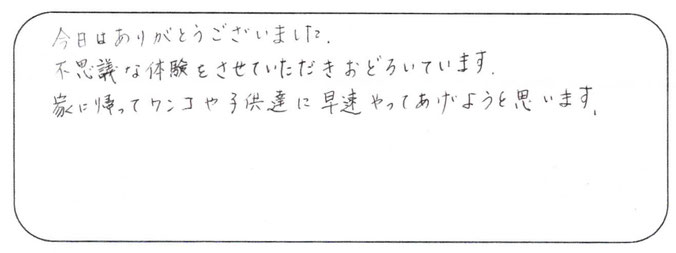 今日はありがとうございました.
不思議な体験をさせていただきおどろいています.
家に帰ってワンコや子供達に早速やってあげようと思います.